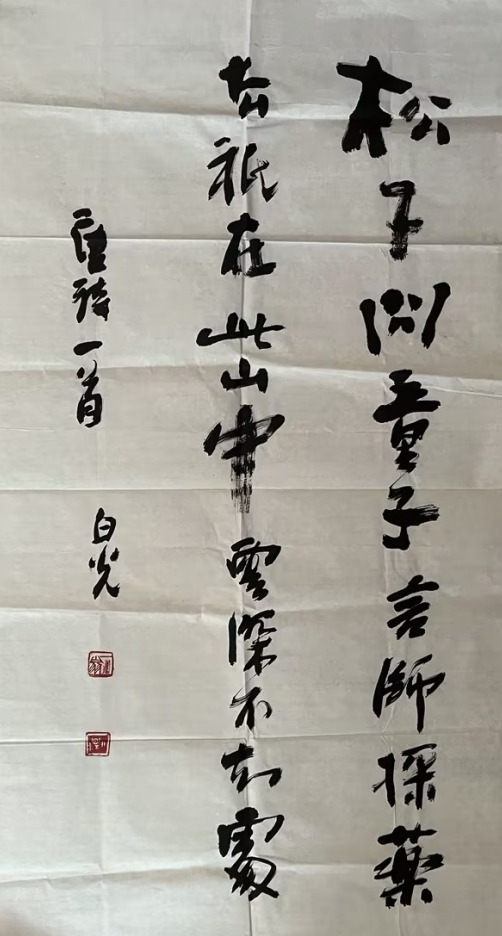 松子問童子言師採藥
去祇在此山中雲深不知處
唐詩一首 白光